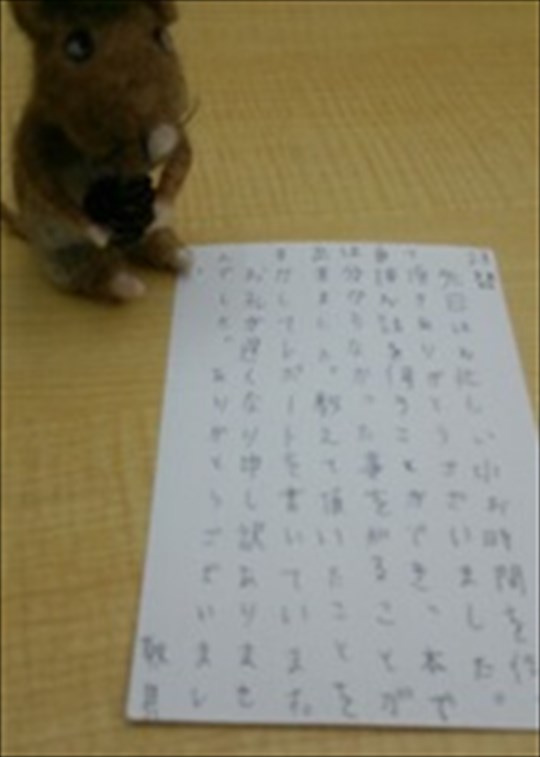 拝啓
先日はお忙しい中お時間を作
って頂きありがとうございました。
直接お話を伺うことができ、本で
は分からなかった事を知ることが
出来ました。教えて頂いたことを
生かしてレポートを書いています。
お礼が遅くなり申し訳ありませ
んでした。ありがとうございまし
敬具